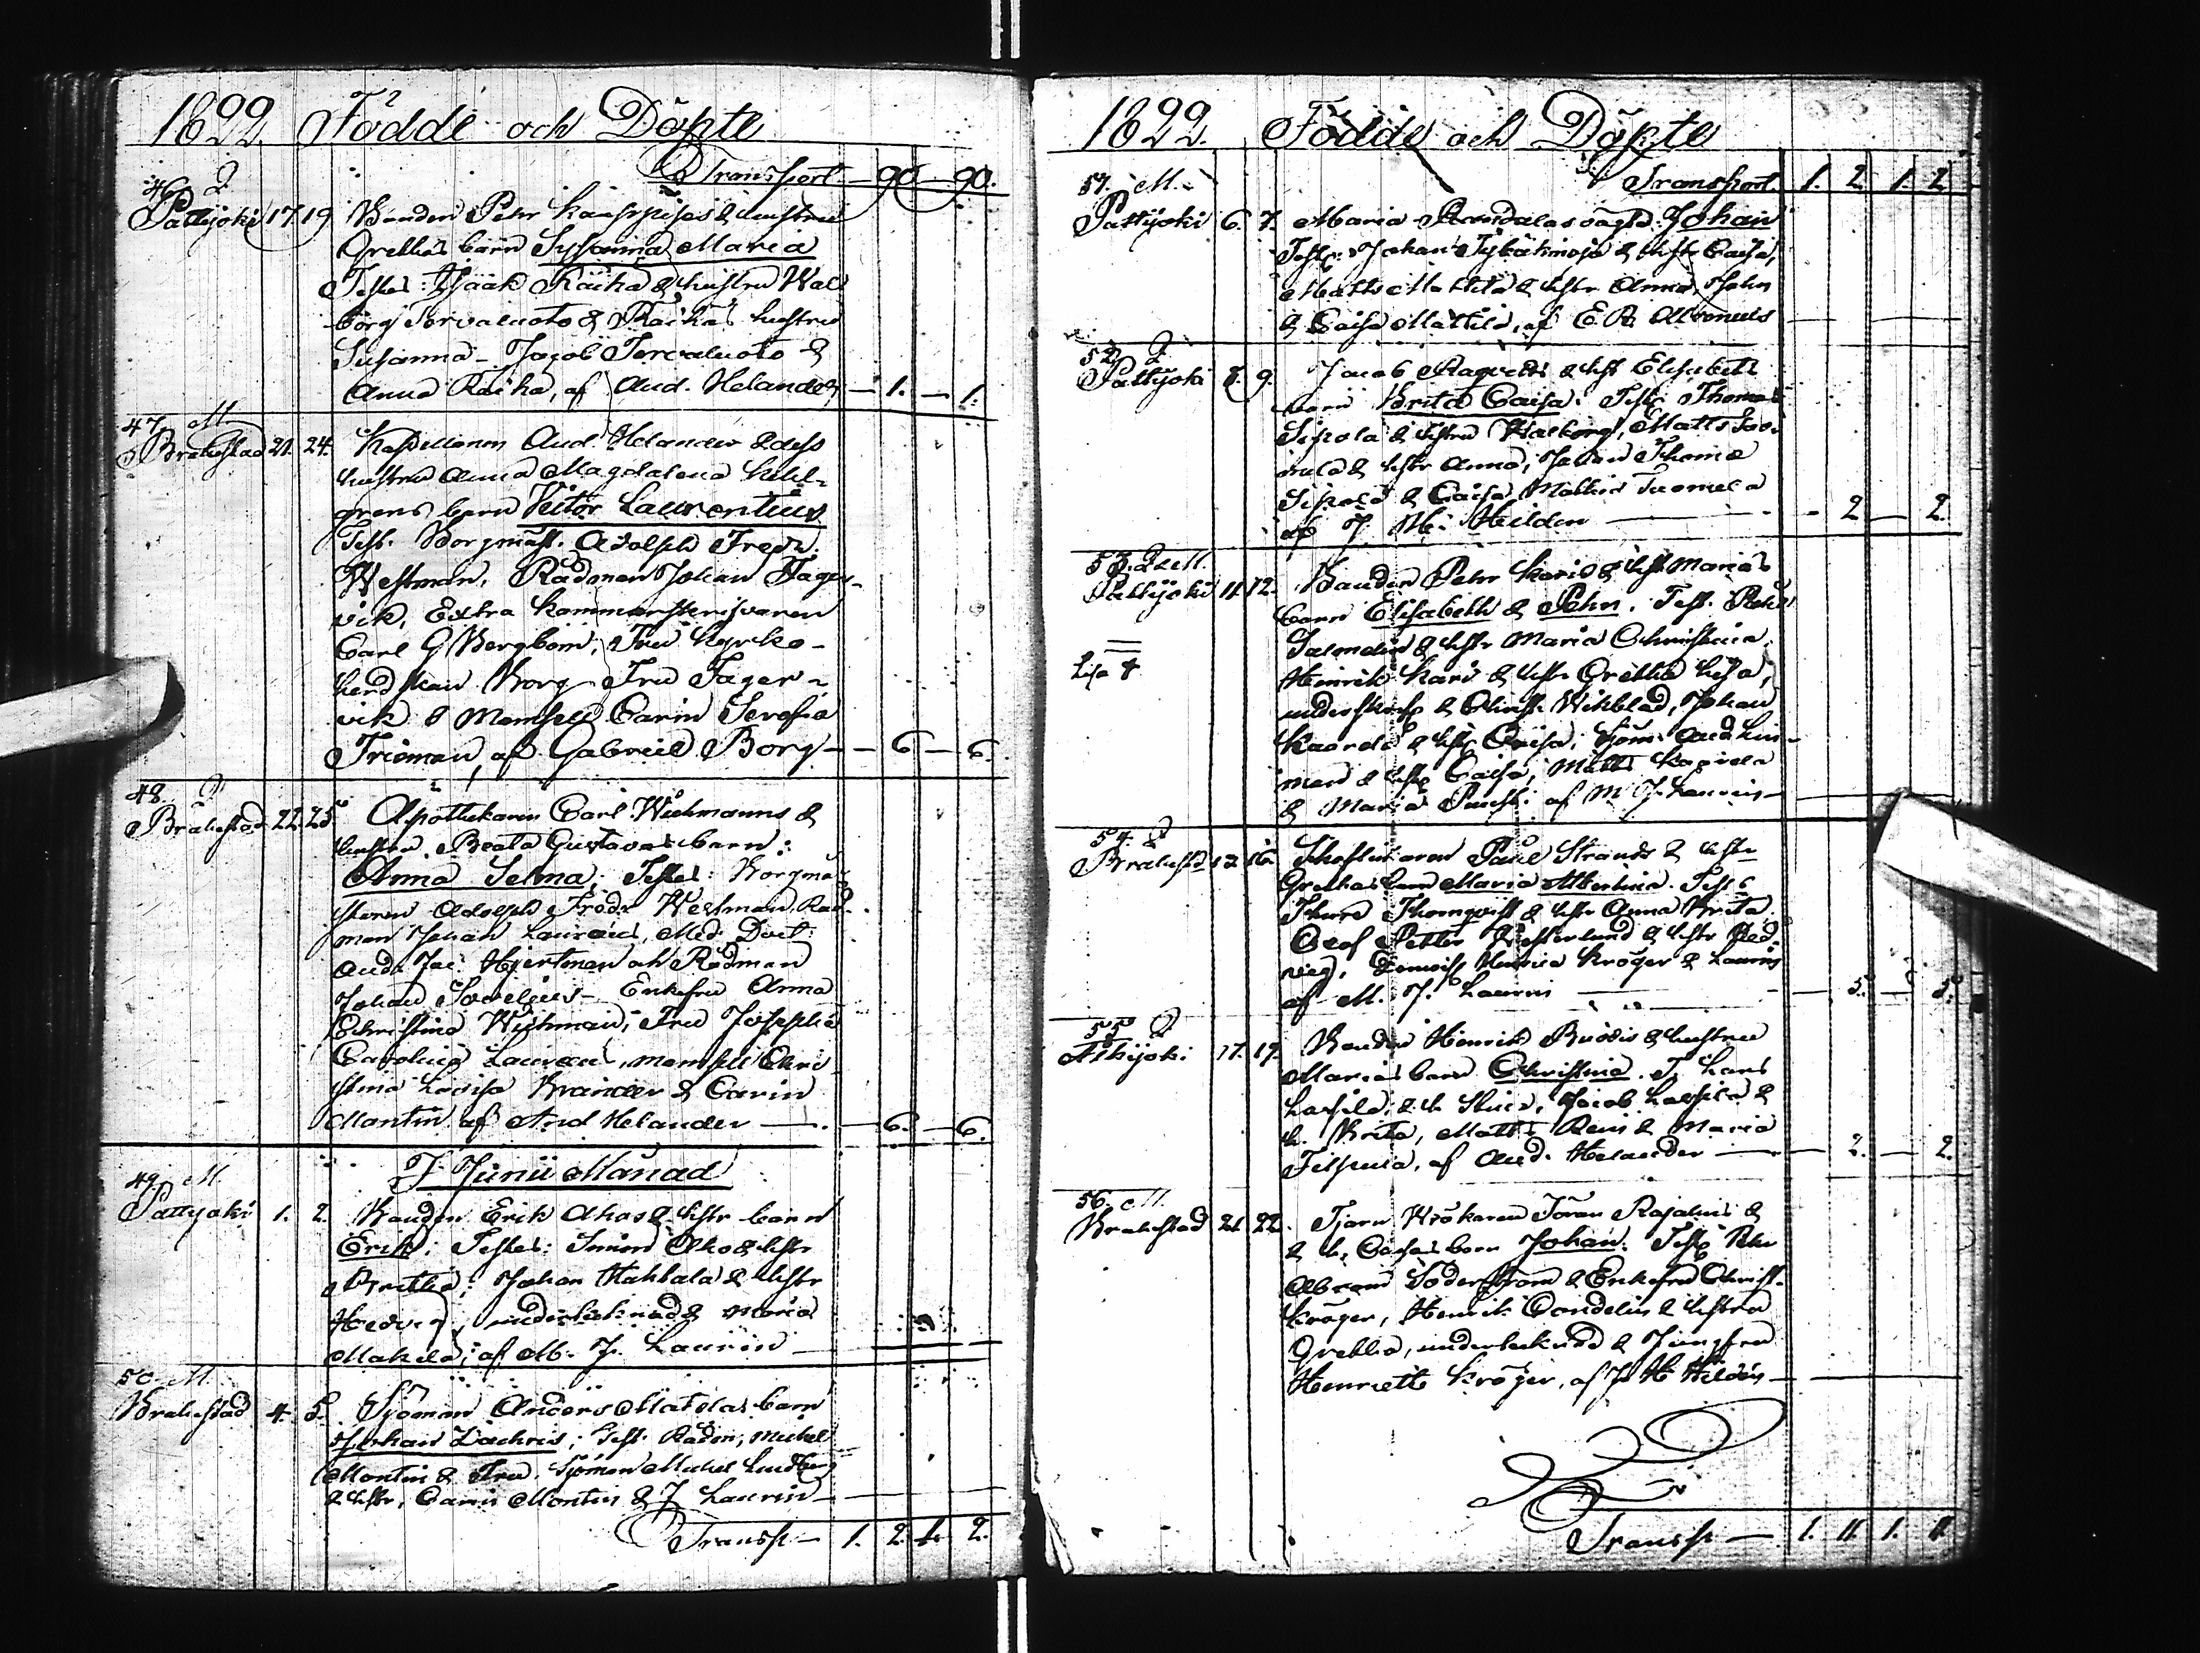 1822. Födde och Döpte
Transport 90 90.
46. Q.
Pattijoki 17. 19 Bonden Pehr & hustru
Grethas barn Susanna Maria
Testes: Isaak Raiha & hustru Wal
borg Tervaluoto & Raihas hustru
Susanna Jacob Tervaluoto &
Anna Raiha, af And. Helander 1. 1.
47. M.
Brahestad 21. 24. Kapellanen And Helander & dess
hustru Anna Magdalena
barn Victor Laurentius
Test. Borgmäst. Adolph Fredr.
Westman, Rådman Johan Fager-
vik, Extra
Carl G Bergbom; Fru Kyrko-
herdskan Borg Fru Fager-
vik & Mamsell Carin Serafia
Frieman, af Gabriel Borg 6 6.
48. Q.
Brahestad 22. 25 Apothekaren Carl Wichmanns &
hustru Beata Gustavas barn:
Anna Selma; Testes: Borgmä-
staren Adolph Fredr Westman, Råd-
man Johan Lauræus, Med. Doct.
And. Jac. Hjertman och Rådman
Johan Sovelius Enkefru Anna
Christina Wichman; Fru Josephia
Carolina Lauræus, Mamsell Chri
stina Lovisa Brander & Carin
Montin af And Helander 6. 6.
I Junii Månad
49. M.
Pattijoki 1. 2. Bonden Erik Ahos & hstr barn
Erik; Testes: Simon Aho & hstr
Gretha; Johan Hahtala & hstr
Hedvig, undertecknad & Maria
Makela; af M. J. Laurin
50. M.
Brahestad 4. 5. Sjöman Anders Matolas barn
Johan Zachris; Test. Rådm, Michel
Montin & Fru. Sjöman Michel Lindberg
& hstr, Carin Montin & J Laurin
Transp 1. 2. 1. 2.
1822. Födde och Döpte
Transport 1. 2. 1. 2
51. M.
Pattijoki 6. 7. Maria Johan
Test: Johan & hstr Caisa,
Matts Mattila & hstr Anna, John
& Caisa Mattila, af E. R. Alcenius
52. Q
Pattijoki 8. 9. Jacob & hst Elisabeth
barn Brita Caisa. Test. Thomas
Sipola & hstru Walborg, Matts
& hstr Anna, Johan Thomæ
Sipola & Caisa Mattsd Tuomela
af J. H. Hilden 2 2.
53. Q & M.
Pattijoki 11. 12. Bonden Pehr Karis & hst Marias
barn Elisabeth & Pehr. Test. Pehr
Salmelin & hstr Maria Christina
Henrik Kari & hstr Gretha Lisa,
& Christ. Wikblad, Johan
& hst Caisa; Sjöm. And Lin-
man & hst Caisa, Matts
& Maria af M J. Laurin
Lisa †
54. Q
Brahestd 12 16. Paul Strands & hstr
Grethas barn Maria Albertina. Test:
Thure Thornqvist & hstr Anna Brita
Olof Petter Westerlund & hstr Hed-
vig, Henrica Kröger & Laurin
af M. J. Laurin 5. 5.
55 Q
Pattijoki 17. 19. Bonden Henrik & hustru
Marias barn Christina. T. Lars
Lassila & h. Stina, Jacob Lassila &
h. Brita, Matts & Maria
af And. Helander 2. 2.
56. M.
Brahestad 21. 22. Tjärubrökaren Jöran Rajalins &
& h. Caisas barn Johan. Test Pehr
Abram Söderström & Enkefru Christ.
Kröger, Henrik Candelin & hstru
Gretha, undertecknad & Jungfru
Henriette Kröger, af J H Hildén
Transp 1. 11. 1. 11